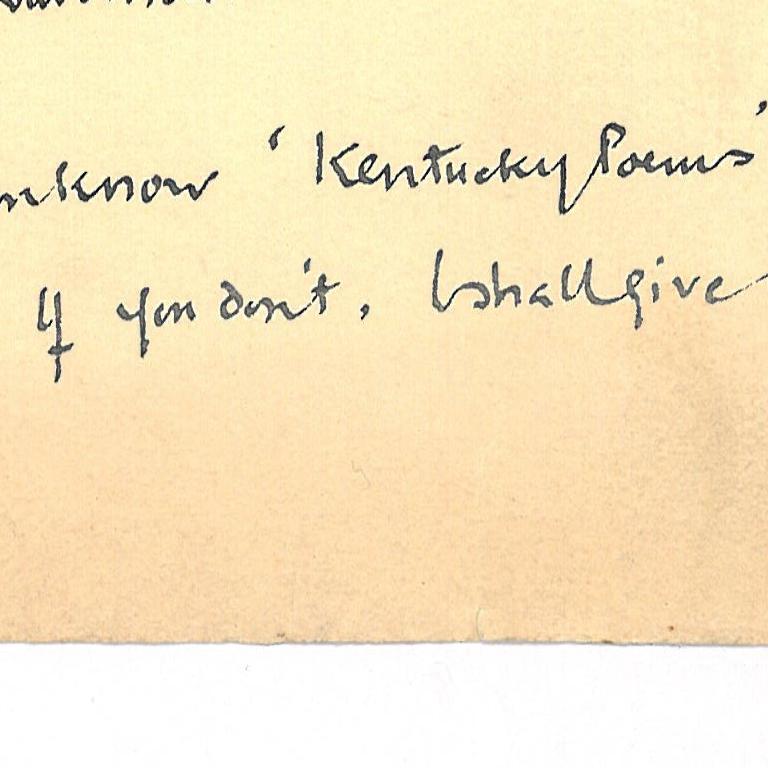 know 'Kentucky Poems'
If you don't, I shall give